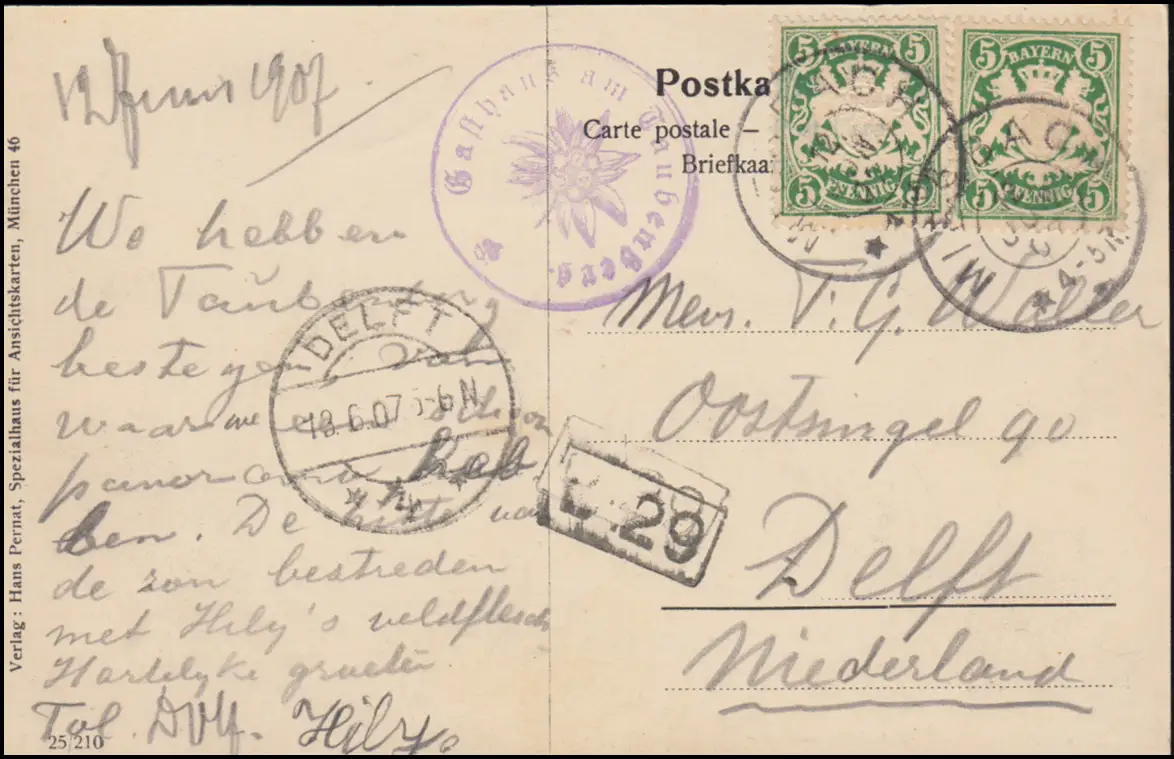 12 Juni 1907
We hebben
de Taubenberg
bestegen, van
waar we een schoon
panorama heb
ben. De hitte van
de zon bestreden
met Hily's veldflesch
Hartelyke groeten
Hily.
25/210
Verlag: Hans Pernat, Spezialhaus für Ansichtskarten, München 46
Gasthaus am Taubenberg
DELFT
18.6.07 5-6N
4
Postka
Carte postale –
Briefkaa
5 BAYERN 5
5 PFENNIG 5
5 BAYERN 5
5 PFENNIG 5
4-5N
29
Mevr. V. G. Waller
Oostsingel 90
Delft
Niederland